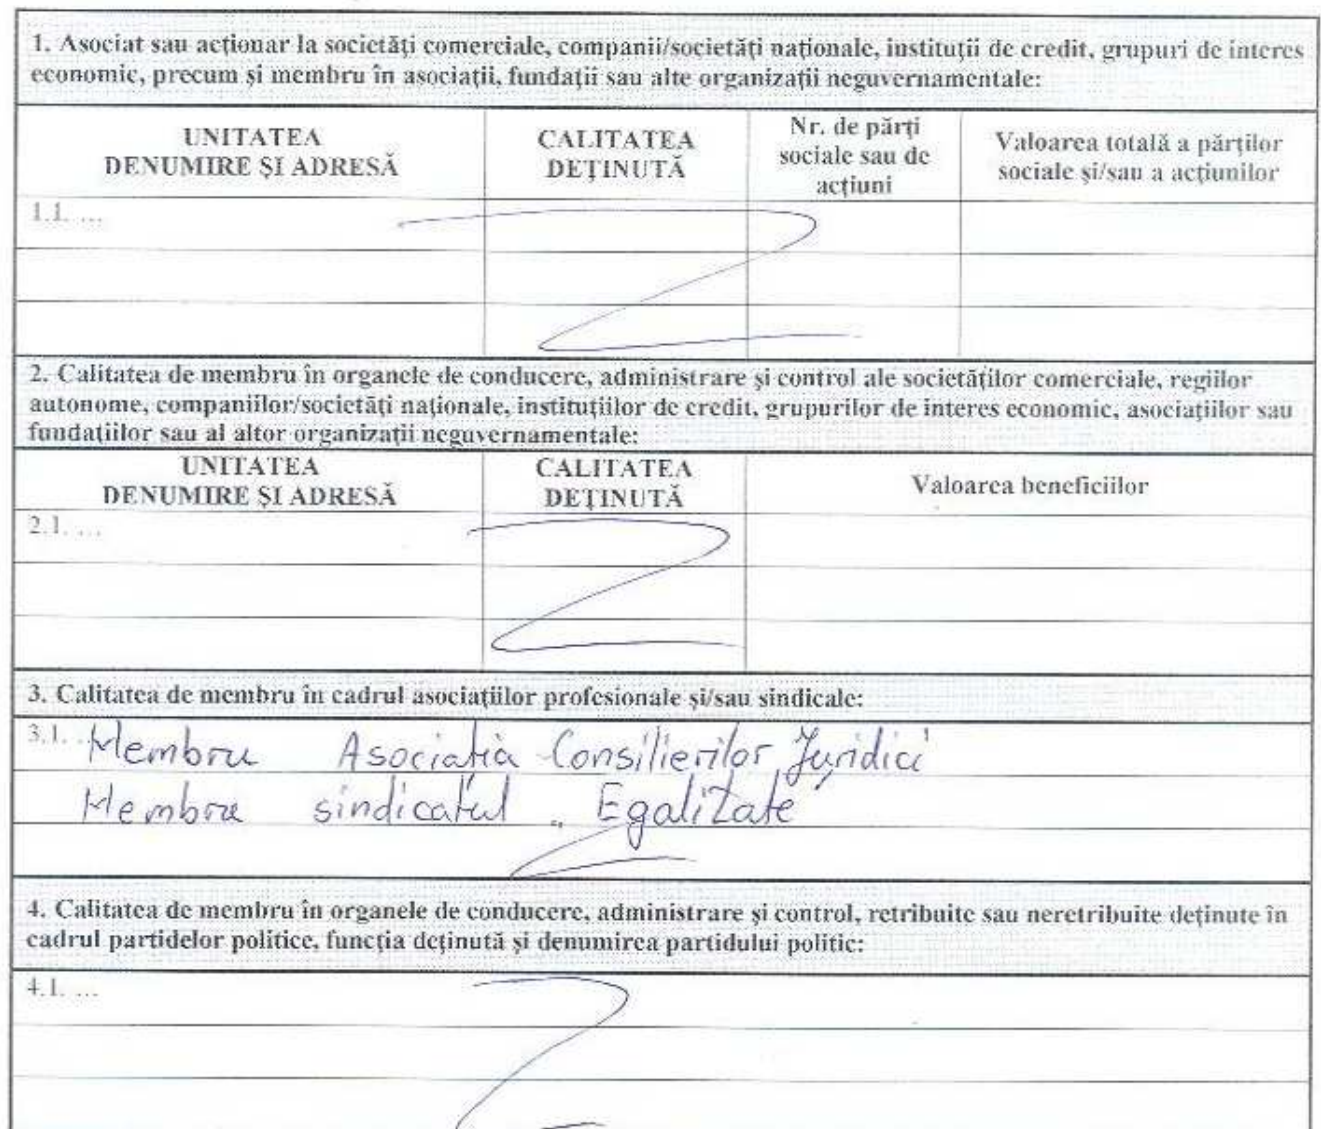 1. Asociat sau acționar la societăți comerciale, companii/societăți naționale, instituții de credit, grupuri de interes
economic, precum și membru în asociații, fundații sau alte organizații neguvernamentale:
UNITATEA
DENUMIRE ȘI ADRESĂ
CALITATEA
DEȚINUTĂ
Nr. de părți
sociale sau de
acțiuni
Valoarea totală a părților
sociale și/sau a acțiunilor
1.1. ...
2. Calitatea de membru în organele de conducere, administrare și control ale societăților comerciale, regiilor
autonome, companiilor/societăți naționale, instituțiilor de credit, grupurilor de interes economic, asociațiilor sau
fundațiilor sau al altor organizații neguvernamentale:
UNITATEA
DENUMIRE ȘI ADRESĂ
CALITATEA
DEȚINUTĂ
Valoarea beneficiilor
2.1. ...
3. Calitatea de membru în cadrul asociațiilor profesionale și/sau sindicale:
3.1. Membru Asociatia Consilierilor Juridici
Membru sindicatul „Egalitate”
4. Calitatea de membru în organele de conducere, administrare și control, retribuite sau neretribuite deținute în
cadrul partidelor politice, funcția deținută și denumirea partidului politic:
4.1. ...